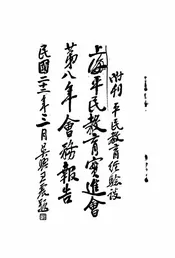 附刊平民教育經驗談
上海平民教育實進會
第八年會務報告
民國二十一年三月